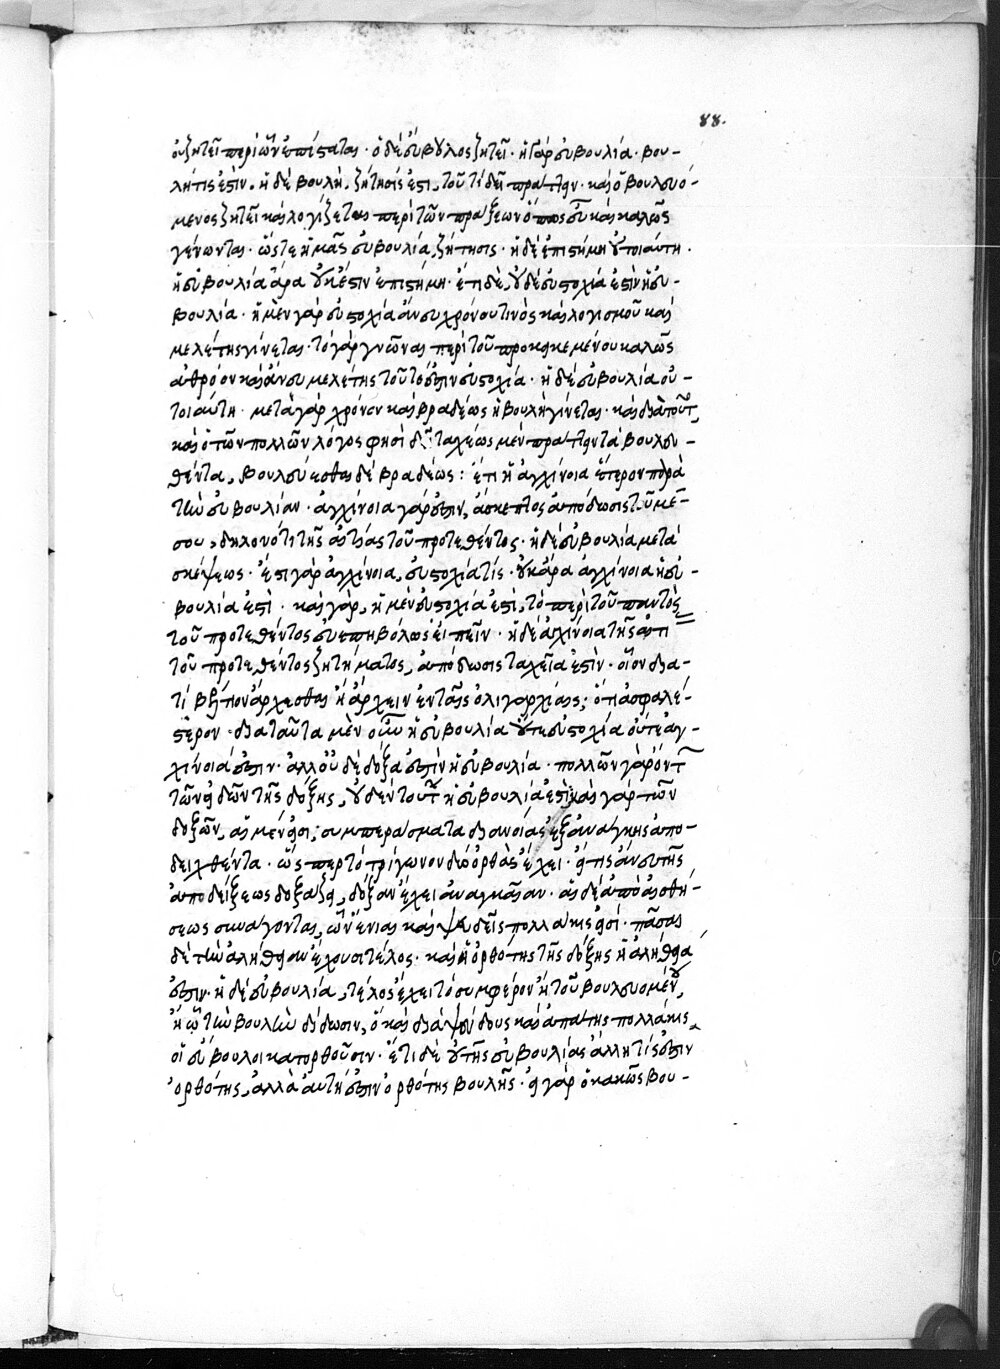 88.
οὐ ζητεῖ περὶ ὧν ἐπίσταται· ὁ δὲ εὔβουλος ζητεῖ· ἡ γὰρ εὐβουλία· βου-
λή τίς ἐστιν. ἡ δὲ βουλὴ, ζήτησίς ἐστι, τοῦ τί δεῖ πράττειν· καὶ ὁ βουλευό-
μενος ζητεῖ καὶ λογίζεται περὶ τῶν πράξεων ὅπως εὖ καὶ καλῶς
γένωνται· ὥστε ἡ μὲν εὐβουλία, ζήτησις· ἡ δὲ ἐπιστήμη οὐ τοιαύτη·
ἡ εὐβουλία ἄρα οὐκ ἔστιν ἐπιστήμη· ἔτι δὲ, οὐδὲ εὐστοχία ἐστὶν ἡ εὐ-
βουλία· ἡ μὲν γὰρ εὐστοχία ἄνευ χρόνου τινὸς καὶ λογισμοῦ καὶ
μελέτης γίνεται· τὸ γὰρ γνῶναι περὶ τοῦ προκειμένου καλῶς
ἀθρόον καὶ ἄνευ μελέτης τοῦτο ἐστιν εὐστοχία· ἡ δὲ εὐβουλία οὐ
τοιαύτη· μετὰ γὰρ χρόνον καὶ βραδέως ἡ βουλὴ γίνεται· καὶ διὰ τοῦτο
καὶ ὁ τῶν πολλῶν λόγος φησὶ δεῖ ταχέως μὲν πράττειν τὰ βουλευ-
θέντα, βουλεύεσθαι δὲ βραδέως: ἔτι ἡ ἀγχίνοια ἕτερον παρὰ
τὴν εὐβουλίαν· ἀγχίνοια γάρ ἐστιν, ἄσκεπτος ἀπόδωσις τοῦ μέ-
σου, δηλονότι τῆς αἰτίας τοῦ προτεθέντος· ἡ δὲ εὐβουλία μετὰ
σκέψεως· ἔστι γὰρ ἀγχίνοια, εὐστοχία τίς· οὐκ ἄρα ἀγχίνοια ἡ εὐ-
βουλία ἐστὶ· καὶ γὰρ, ἡ μὲν εὐστοχία ἐστὶ, τὸ περὶ τοῦ παντὸς
τοῦ προτεθέντος εὐεπηβόλως εἰπεῖν· ἡ δὲ ἀγχίνοια τῆς αἰτί-
τοῦ προτεθέντος ζητήματος, ἀπόδωσις ταχεῖα ἐστὶν· οἷον δια-
τί βέλτιον ἄρχεσθαι ἢ ἄρχειν ἐν ταῖς ὀλιγαρχίαις; ὅτι ἀσφαλέ-
στερον· διὰ ταῦτα μὲν οὖν ἡ εὐβουλία οὔτε εὐστοχία οὔτε ἀγ-
χίνοιά ἐστιν· ἀλλ' οὐδὲ δόξα ἐστὶν ἡ εὐβουλία· πολλῶν γὰρ ὄντων
τῶν εἰδῶν τῆς δόξης, οὐδὲν τούτων ἡ εὐβουλία ἐστὶ, καὶ γὰρ τῶν
δοξῶν, αἱ μέν εἰσι, συμπεράσματα διανοίας ἐξ ἀνάγκης ἀπο-
δειχθέντα· ὥσπερ τὸ τρίγωνον δύο ὀρθὰς ἔχει· εἴ τις ἄνευ τῆς
ἀποδείξεως δοξάζει, δόξαν ἔχει ἀναγκαίαν· αἱ δὲ ἀπὸ αἰσθή-
σεως συνάγονται, ὧν ἔνιαι καὶ ψευδεῖς πολλάκις εἰσί· πᾶσαι
δὲ τὴν ἀλήθειαν ἔχουσι τέλος· καὶ ἡ ὀρθότης τῆς δόξης ἡ ἀλήθεια
ἐστιν· ἡ δὲ εὐβουλία, τέλος ἔχει τὸ συμφέρον ἢ τοῦ βουλευομένου,
ἢ ᾧ τὴν βουλὴν δίδωσιν, ὃ καὶ διὰ ψεύδους καὶ ἀπάτης πολλάκις
οἱ εὔβουλοι κατορθοῦσιν· ἔτι δὲ οὐ τῆς εὐβουλίας ἄλλη τίς ἐστιν
ὀρθότης, ἀλλὰ αὐτή ἐστιν ὀρθότης βουλῆς· εἰ γὰρ ὁ κακῶς βου-